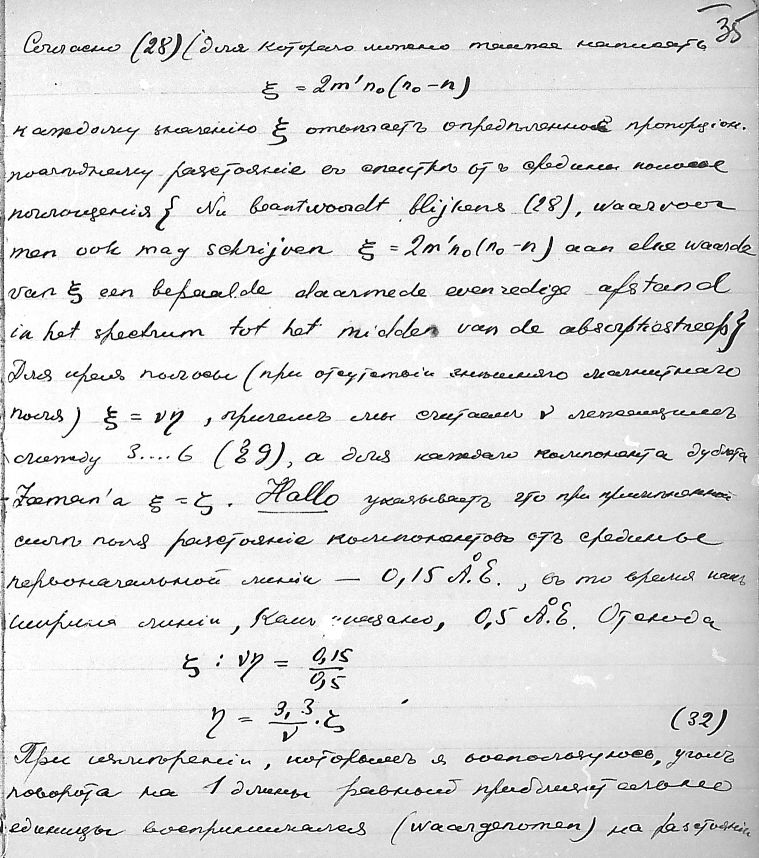 35
Согласно (28) (для котораго можно также написать
ξ = 2m'n₀(n₀-n)
каждому значенію ξ отвѣчаетъ опредѣленное пропорціон.
разстояніе въ спектрѣ отъ средины полосы
поглощенія { Nu beantwoordt blijkens (28), waarvoor
men ook mag schrijven ξ = 2m'n₀(n₀-n) aan elke waarde
van ξ een bepaalde daarmede evenredige afstand
in het spectrum tot het midden van de absorptiestreep}
Для края полосы (при отсутствіи внѣшняго магнитнаго
поля) ξ = νη, причемъ мы считаемъ ν лежащимъ
между 3....6 (§ 9), а для каждаго компонента дублета
Zeeman'а ξ = ζ. Hallo указываетъ что при примѣненной
силѣ поля разстояніе компонентовъ отъ средины
первоначальной линіи — 0,15 Å.E., въ то время какъ
ширина линіи, какъ указано, 0,5 Å.E. Отсюда
ζ : νη = 0,15/0,5
η = 3,3/ν · ζ (32)
При измѣреніи, которымъ я воспользуюсь, уголъ
поворота на 1 длины равный приблизительно
единицы воспринимался (waargenomen) на разстояніи